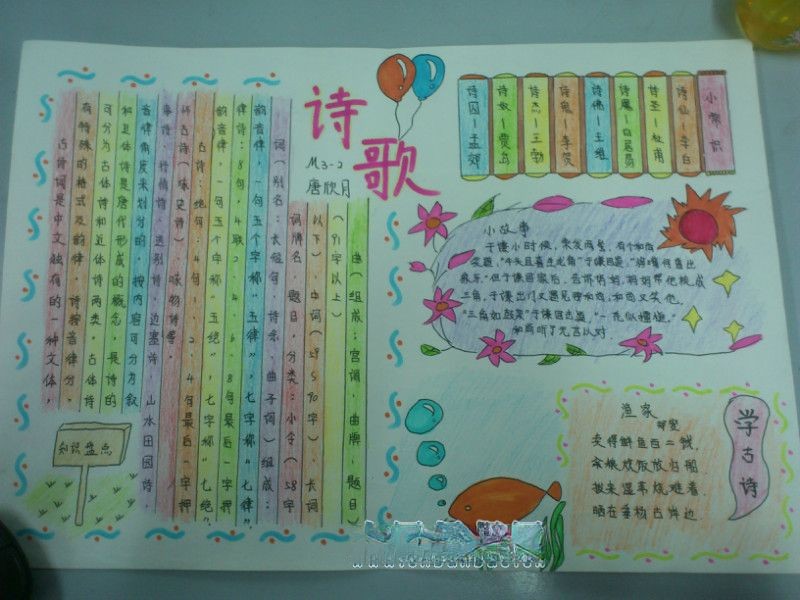 诗歌
M3-2
唐欣月
古诗词是中文独有的一种文体,
有特殊的格式及韵律,诗按音律分,
可分为古体诗和近体诗两类,古体诗
和近体诗是唐代形成的概念,是诗的
音律角度来划分的,按内容可分为叙
事诗、抒情诗、送别诗、边塞诗、山水田园诗
怀古诗(咏史诗)、咏物诗等。
古诗:绝句:4句,1、2、4句最后一字押
韵音律,一句五个字称“五绝”,七字称“七绝”
律诗:8句,4联2、4、6、8句最后一字押
韵音律,一句五个字称“五律”,七字称“七律”;
词(别名:长短句,诗余,曲子词)组成:
词牌名,题目,分类:小令(58字
以下) 中词(59~90字) 长词
(91字以上)
曲(组成:宫调,曲牌,题目)
知识盘点
小常识
诗仙—李白
诗圣—杜甫
诗魔—白居易
诗佛—王维
诗鬼—李贺
诗杰—王勃
诗奴—贾岛
诗囚—孟郊
小故事
于谦小时候,梳发两髻,有个和尚
笑题,“牛头且喜生龙角”于谦回,“狗嘴何曾出
象牙”但于谦回家后,告诉妈妈,妈妈帮他梳成
三角,于谦出门又遇见那和尚,和尚又笑他,
“三角如鼓架”于谦回击道,“一秃似擂槌”
和尚听了无言以对
学古诗
渔家
郑燮
卖得鲜鱼百二钱,
籴粮炊饭放归船
拔来湿苇烧难着
晒在垂杨古岸边